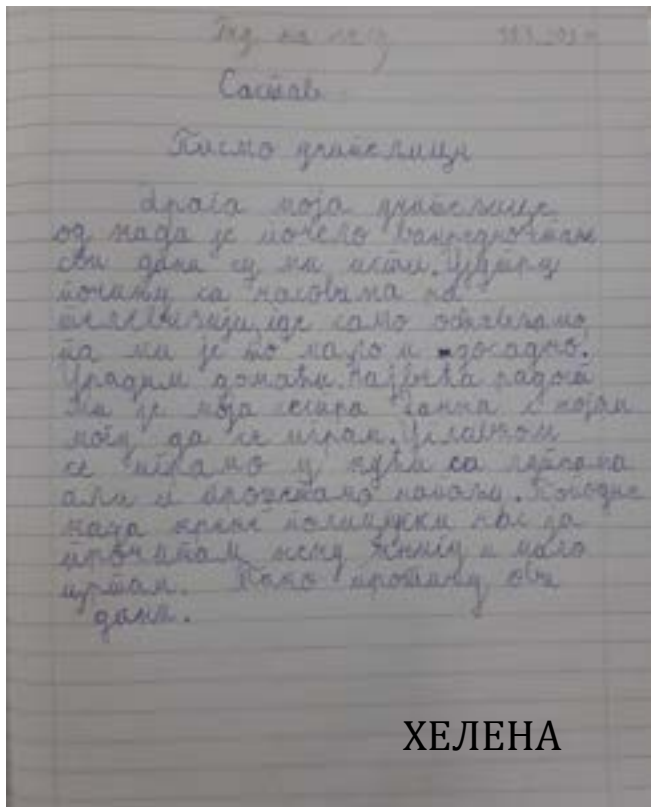 Рад на часу
Састав
Писмо учитељици
Драга моја учитељице
од када је почело ванредно стање
сви дани су ми исти. Ујутру
почињу са часовима на
телевизији, где само
па ми је то мало и досадно.
Урадим домаћи. Највећа радост
ми је моја сестра с којом
могу да се играм. Углавном
се играмо у кући са луткама
али и помало. Поподне
када крене полицијски час ја
прочитам неку књигу и мало
цртам. Тако пролазе ови
дани.
ХЕЛЕНА